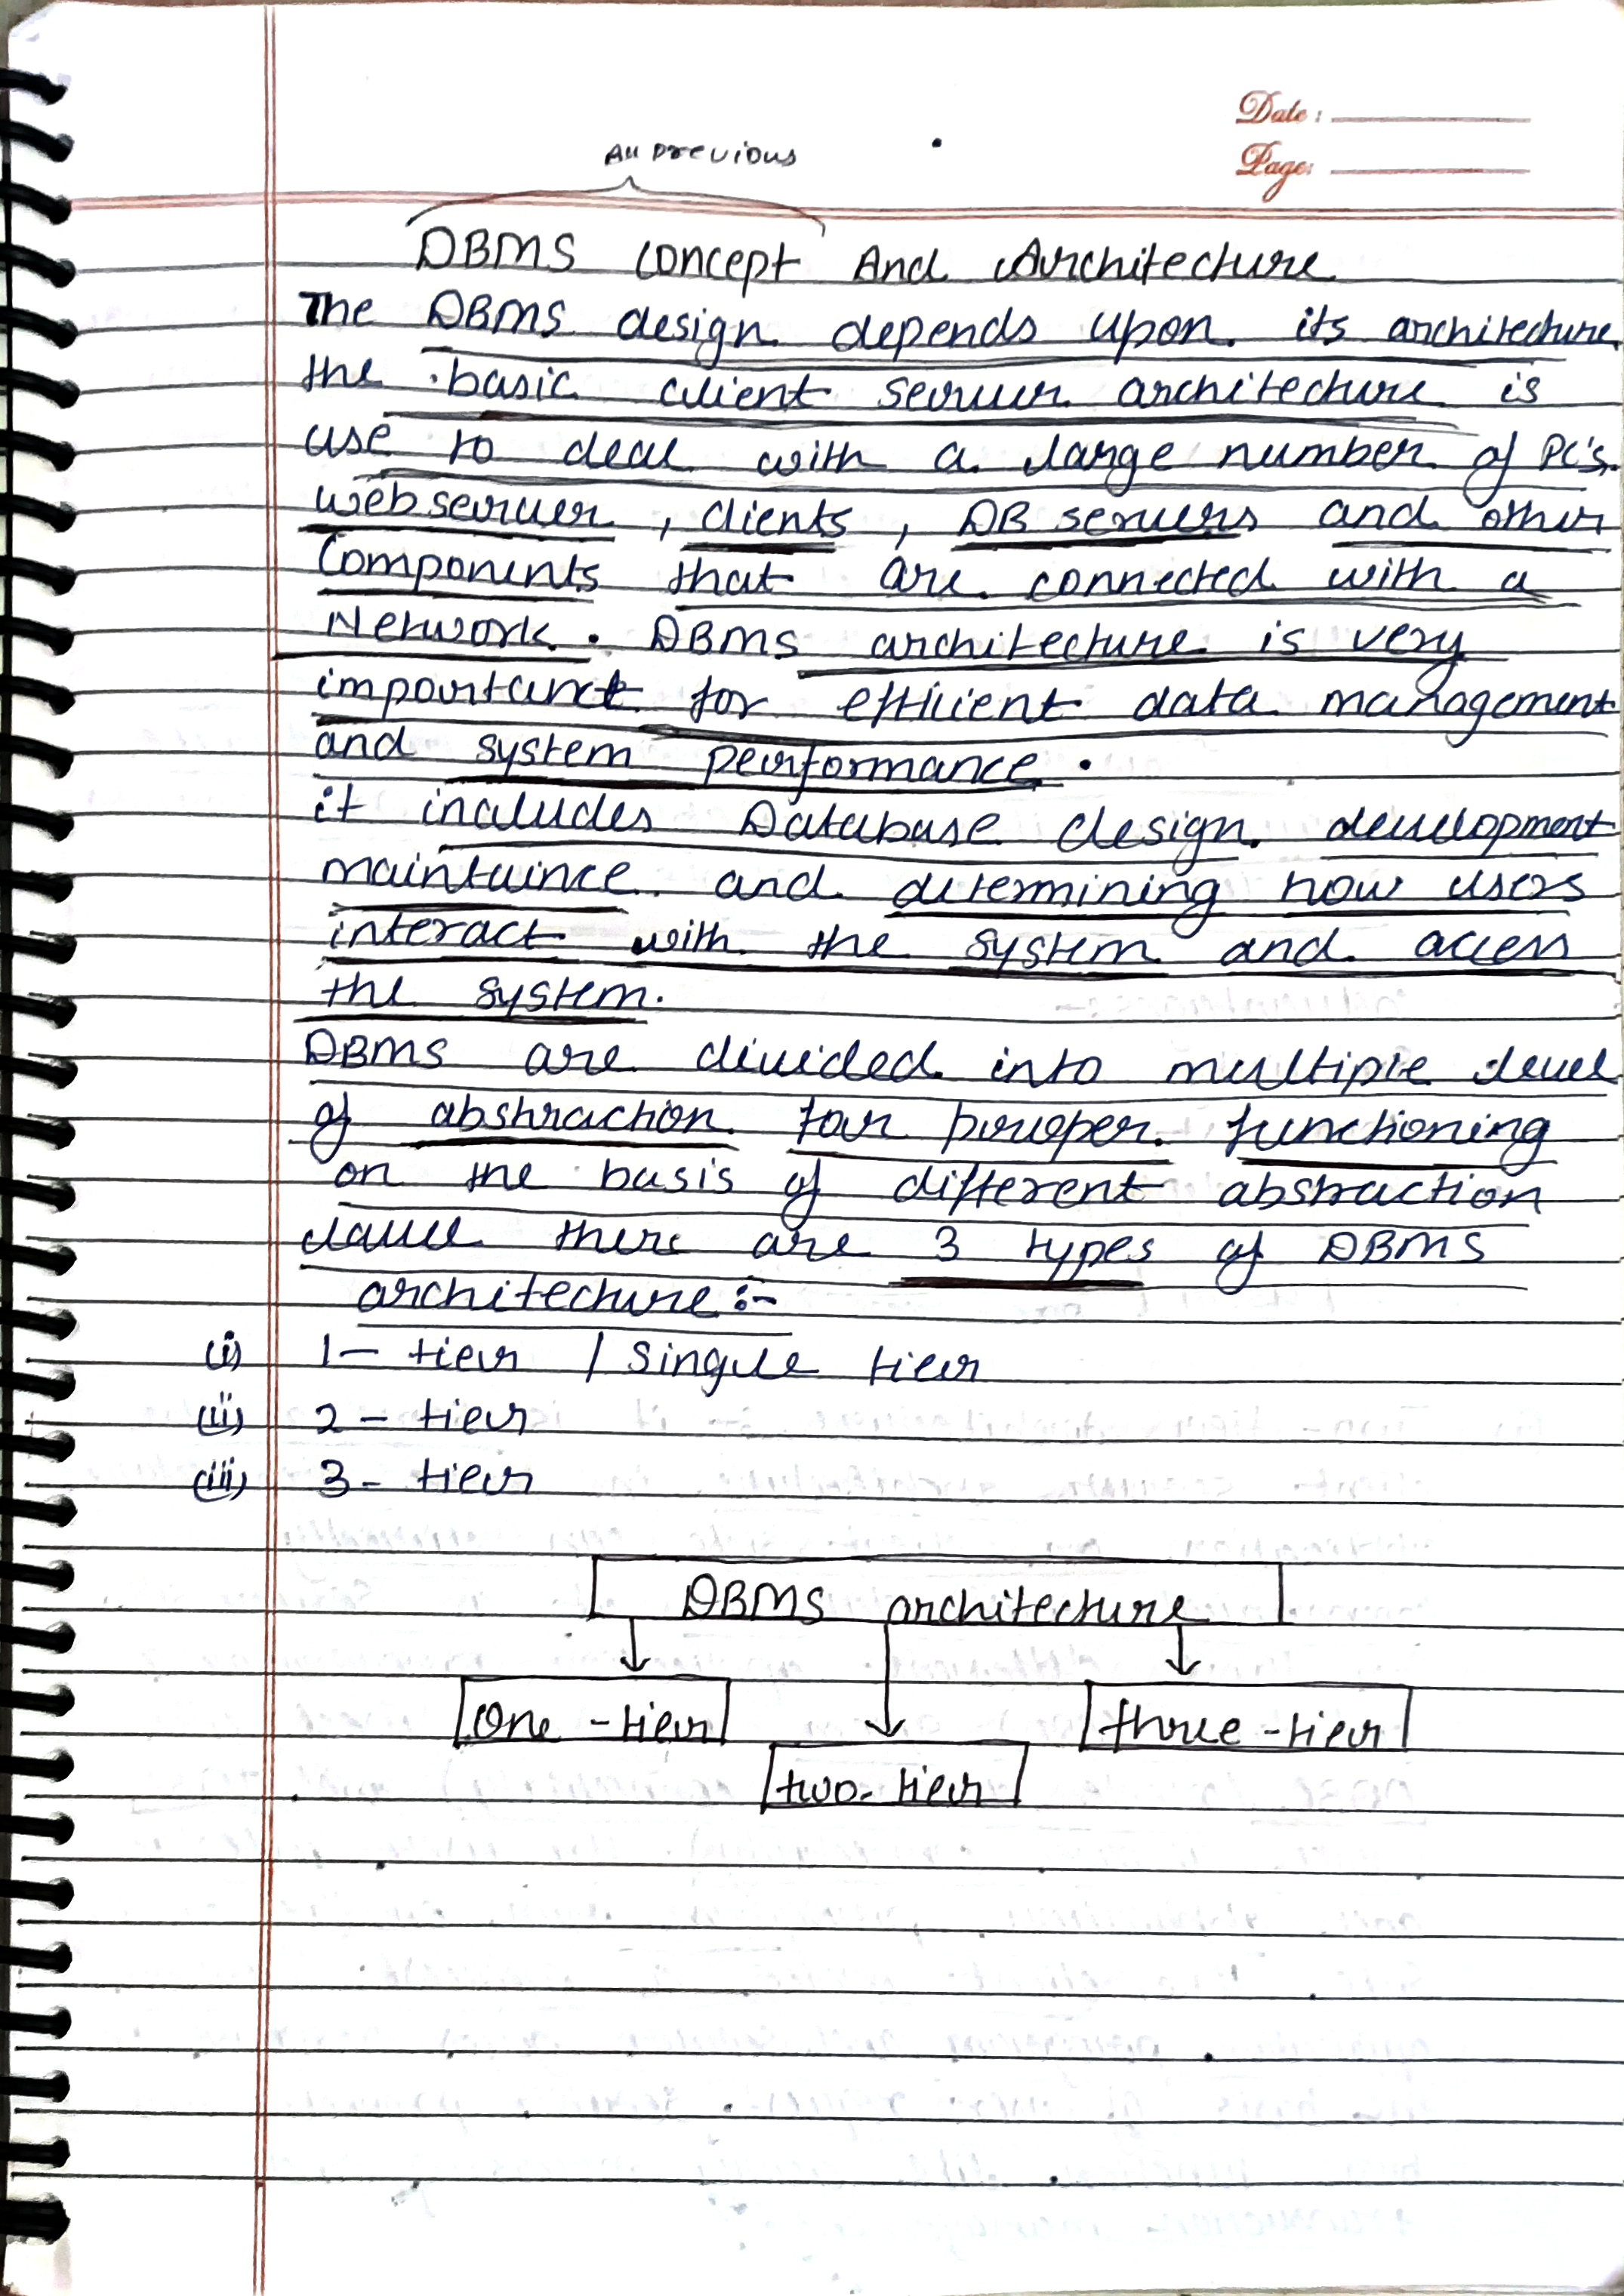 Date :
Page:
All previous
DBMS concept And Architecture
The DBMS design depends upon its architecture
the basic client server architecture is
use to deal with a large number of PC's.
web server , clients , DB servers and other
Components that are connected with a
Network. DBMS architecture is very
important for efficient data management
and system performance.
it includes Database design development
maintaince and determining how users
interact with the system and access
the system.
DBMS are divided into multiple level
of abstraction for proper functioning
on the basis of different abstraction
there are 3 types of DBMS
architecture :-
(i) 1- tier / Single tier
(ii) 2 - tier
(iii) 3- tier
DBMS architecture
One - tier
three - tier
two- tier